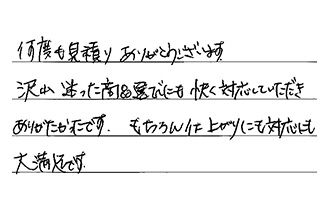 何度も見積り ありがとうございます
沢山 迷った商品選びにも 快く対応していただき
ありがたかったです. もちろん仕上がりにも対応にも
大満足です.